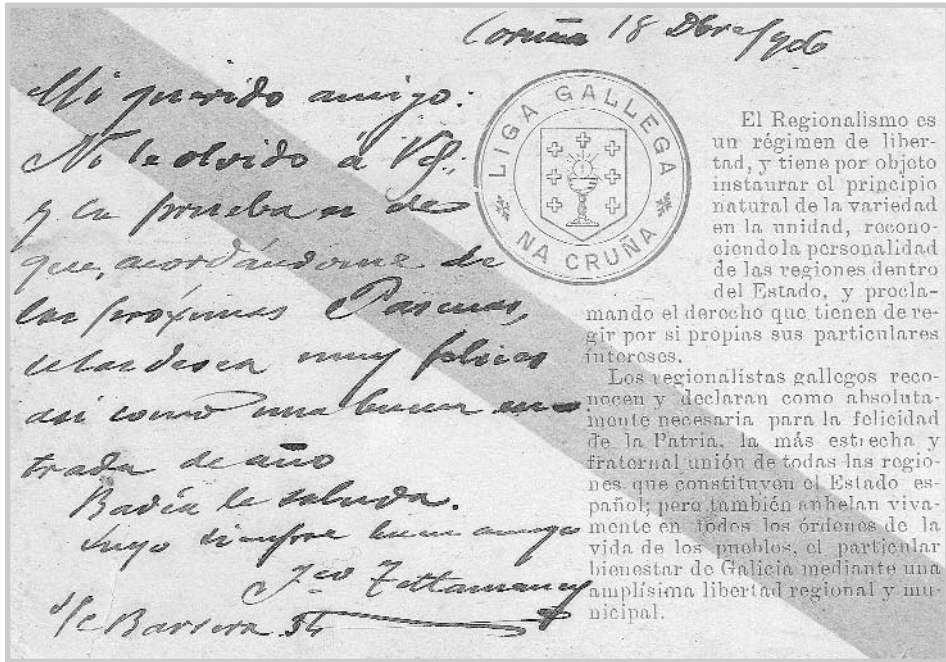 Coruña 18 Dbre/906
Mi querido amigo:
No le olvido á Vd.;
y la prueba es de
que, acordándome de
las próximas Pascuas,
se las desea muy felices
asi como una buena en-
trada de año
Badía le saluda.
Suyo siempre buen amigo
Fco Tettamancy
s/c Barrera 34
LIGA GALLEGA
NA CRUÑA
El Regionalismo es
un régimen de liber-
tad, y tiene por objeto
instaurar el principio
natural de la variedad
en la unidad, recono-
ciendo la personalidad
de las regiones dentro
del Estado, y procla-
mando el derecho que tienen de re-
gir por si propias sus particulares
intereses.
Los regionalistas gallegos reco-
nocen y declaran como absoluta-
mente necesaria para la felicidad
de la Patria, la más estrecha y
fraternal unión de todas las regio-
nes que constituyen el Estado es-
pañol; pero también anhelan viva-
mente en todos los órdenes de la
vida de los pueblos, el particular
bienestar de Galicia mediante una
amplísima libertad regional y mu-
nicipal.